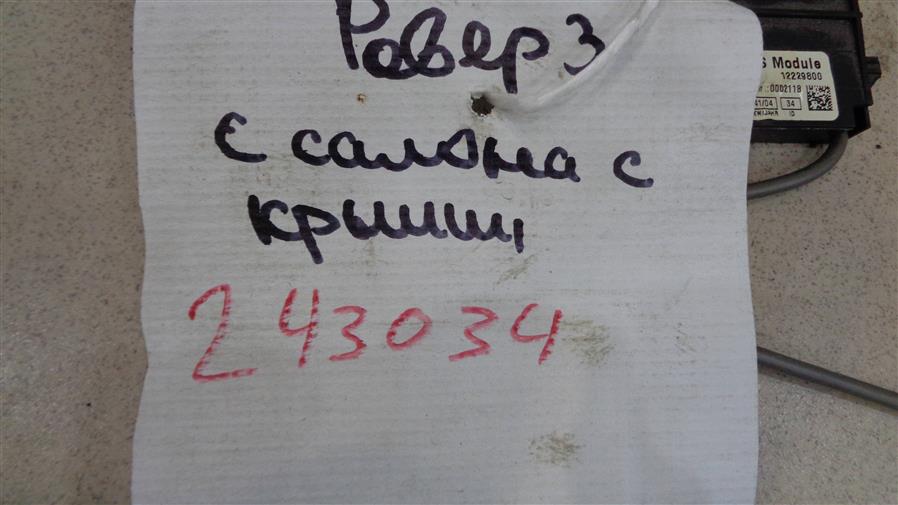 Ровер 3
с салона с
крыши
243034
S Module
12229800
:0002118
41/04 34
ID